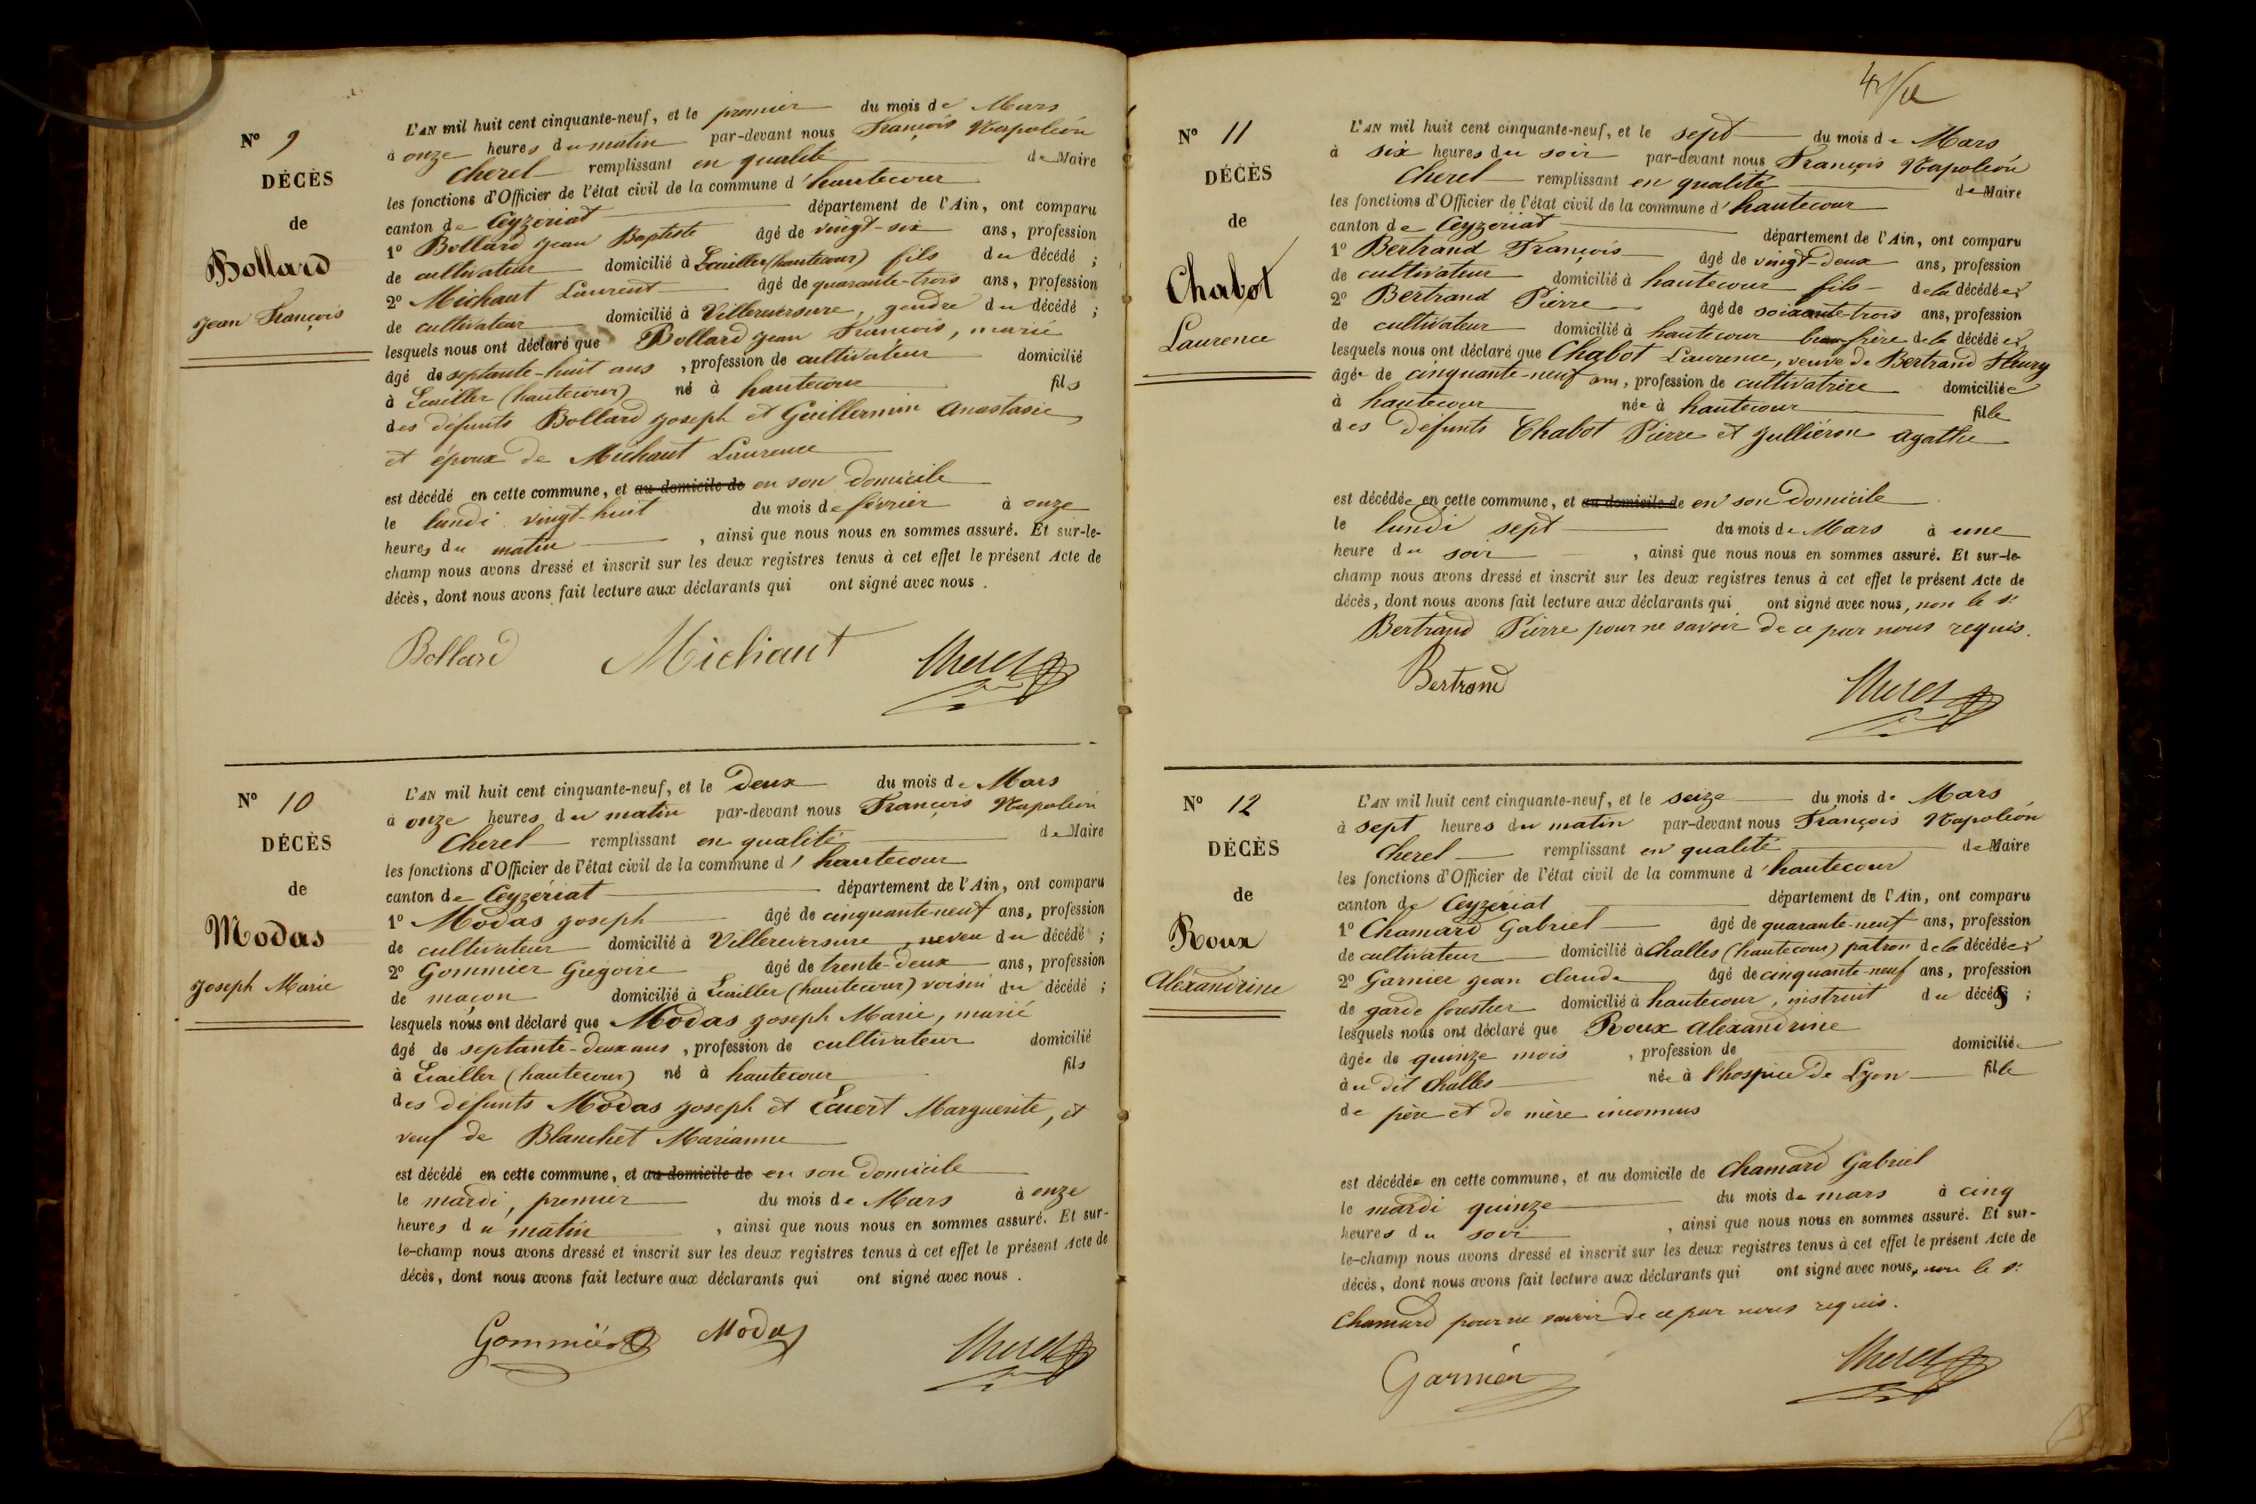 Nº 9
DÉCÈS
de
Bollard
Jean François
L'AN mil huit cent cinquante-neuf, et le premier du mois de Mars
à onze heures du matin par-devant nous François Napoléon
Cherel remplissant en qualité de Maire
les fonctions d'Officier de l'état civil de la commune d'hautecour
canton de Ceyzériat département de l'Ain, ont comparu
1º Bollard Jean Baptiste âgé de vingt-six ans, profession
de cultivateur domicilié à (hautecour) fils du décédé ;
2º Michaut Laurent âgé de quarante-trois ans, profession
de cultivateur domicilié à Villereversure, gendre du décédé ;
lesquels nous ont déclaré que Bollard Jean François, marié
âgé de septante-huit ans, profession de cultivateur domicilié
à (hautecour) né à hautecour fils
des défunts Bollard Joseph et Guillermin Anastasie
et époux de Michaut Laurence
est décédé en cette commune, et au domicile de en son domicile
le lundi vingt-huit du mois de février à onze
heures du matin, ainsi que nous nous en sommes assuré. Et sur-le-
champ nous avons dressé et inscrit sur les deux registres tenus à cet effet le présent Acte de
décès, dont nous avons fait lecture aux déclarants qui ont signé avec nous.
Bollard Michaut Cherel
Nº 10
DÉCÈS
de
Modas
Joseph Marie
L'AN mil huit cent cinquante-neuf, et le deux du mois de Mars
à onze heures du matin par-devant nous François Napoléon
Cherel remplissant en qualité de Maire
les fonctions d'Officier de l'état civil de la commune d'hautecour
canton de Ceyzériat département de l'Ain, ont comparu
1º Modas Joseph âgé de cinquante-neuf ans, profession
de cultivateur domicilié à Villereversure, neveu du décédé ;
2º Gommier Grégoire âgé de trente-deux ans, profession
de maçon domicilié à (hautecour) voisin du décédé ;
lesquels nous ont déclaré que Modas Joseph Marie, marié
âgé de septante-deux ans, profession de cultivateur domicilié
à (hautecour) né à hautecour fils
des défunts Modas Joseph et Marguerite, et
veuf de Blanchet Marianne
est décédé en cette commune, et au domicile de en son domicile
le mardi, premier du mois de Mars à onze
heures du matin, ainsi que nous nous en sommes assuré. Et sur-
le-champ nous avons dressé et inscrit sur les deux registres tenus à cet effet le présent Acte de
décès, dont nous avons fait lecture aux déclarants qui ont signé avec nous.
Gommier Modas Cherel
Nº 11
DÉCÈS
de
Chabot
Laurence
L'AN mil huit cent cinquante-neuf, et le sept du mois de Mars
à six heures du soir par-devant nous François Napoléon
Cherel remplissant en qualité de Maire
les fonctions d'Officier de l'état civil de la commune d'hautecour
canton de Ceyzériat département de l'Ain, ont comparu
1º Bertrand François âgé de vingt-deux ans, profession
de cultivateur domicilié à hautecour fils de la décédée ;
2º Bertrand Pierre âgé de soixante-trois ans, profession
de cultivateur domicilié à hautecour beau-frère de la décédée ;
lesquels nous ont déclaré que Chabot Laurence, veuve de Bertrand Fleury
âgée de cinquante-neuf ans, profession de cultivatrice domiciliée
à hautecour née à hautecour fille
des défunts Chabot Pierre et Julliéron Agathe
est décédée en cette commune, et au domicile de en son domicile
le lundi sept du mois de Mars à une
heure du soir, ainsi que nous nous en sommes assuré. Et sur-le-
champ nous avons dressé et inscrit sur les deux registres tenus à cet effet le présent Acte de
décès, dont nous avons fait lecture aux déclarants qui ont signé avec nous, non le sr
Bertrand Pierre pour ne savoir de ce par nous requis.
Bertrand Cherel
Nº 12
DÉCÈS
de
Roux
Alexandrine
L'AN mil huit cent cinquante-neuf, et le seize du mois de Mars
à sept heures du matin par-devant nous François Napoléon
Cherel remplissant en qualité de Maire
les fonctions d'Officier de l'état civil de la commune d'hautecour
canton de Ceyzériat département de l'Ain, ont comparu
1º Chamard Gabriel âgé de quarante-neuf ans, profession
de cultivateur domicilié à Challes (hautecour) patron de la décédée ;
2º Garnier Jean claude âgé de cinquante-neuf ans, profession
de garde forestier domicilié à hautecour, instruit du décès ;
lesquels nous ont déclaré que Roux Alexandrine
âgée de quinze mois, profession de domiciliée
au dit Challes née à l'hospice de Lyon fille
de père et de mère inconnus
est décédée en cette commune, et au domicile de Chamard Gabriel
le mardi quinze du mois de mars à cinq
heures du soir, ainsi que nous nous en sommes assuré. Et sur-
le-champ nous avons dressé et inscrit sur les deux registres tenus à cet effet le présent Acte de
décès, dont nous avons fait lecture aux déclarants qui ont signé avec nous, non le sr
Chamard pour ne savoir de ce par nous requis.
Garnier Cherel